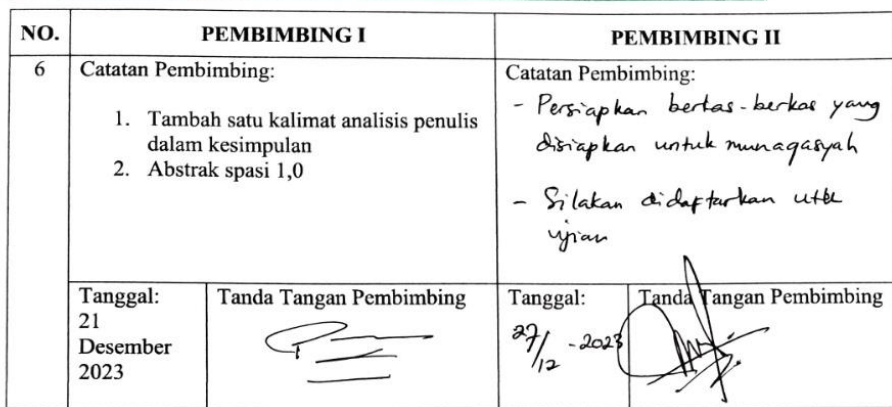 NO.
PEMBIMBING I
PEMBIMBING II
6
Catatan Pembimbing:
1. Tambah satu kalimat analisis penulis
dalam kesimpulan
2. Abstrak spasi 1,0
Catatan Pembimbing:
- Persiapkan berkas-berkas yang
disiapkan untuk munaqasyah
- Silakan didaftarkan utk
ujian
Tanggal:
21
Desember
2023
Tanda Tangan Pembimbing
Tanggal:
27/12 - 2023
Tanda Tangan Pembimbing